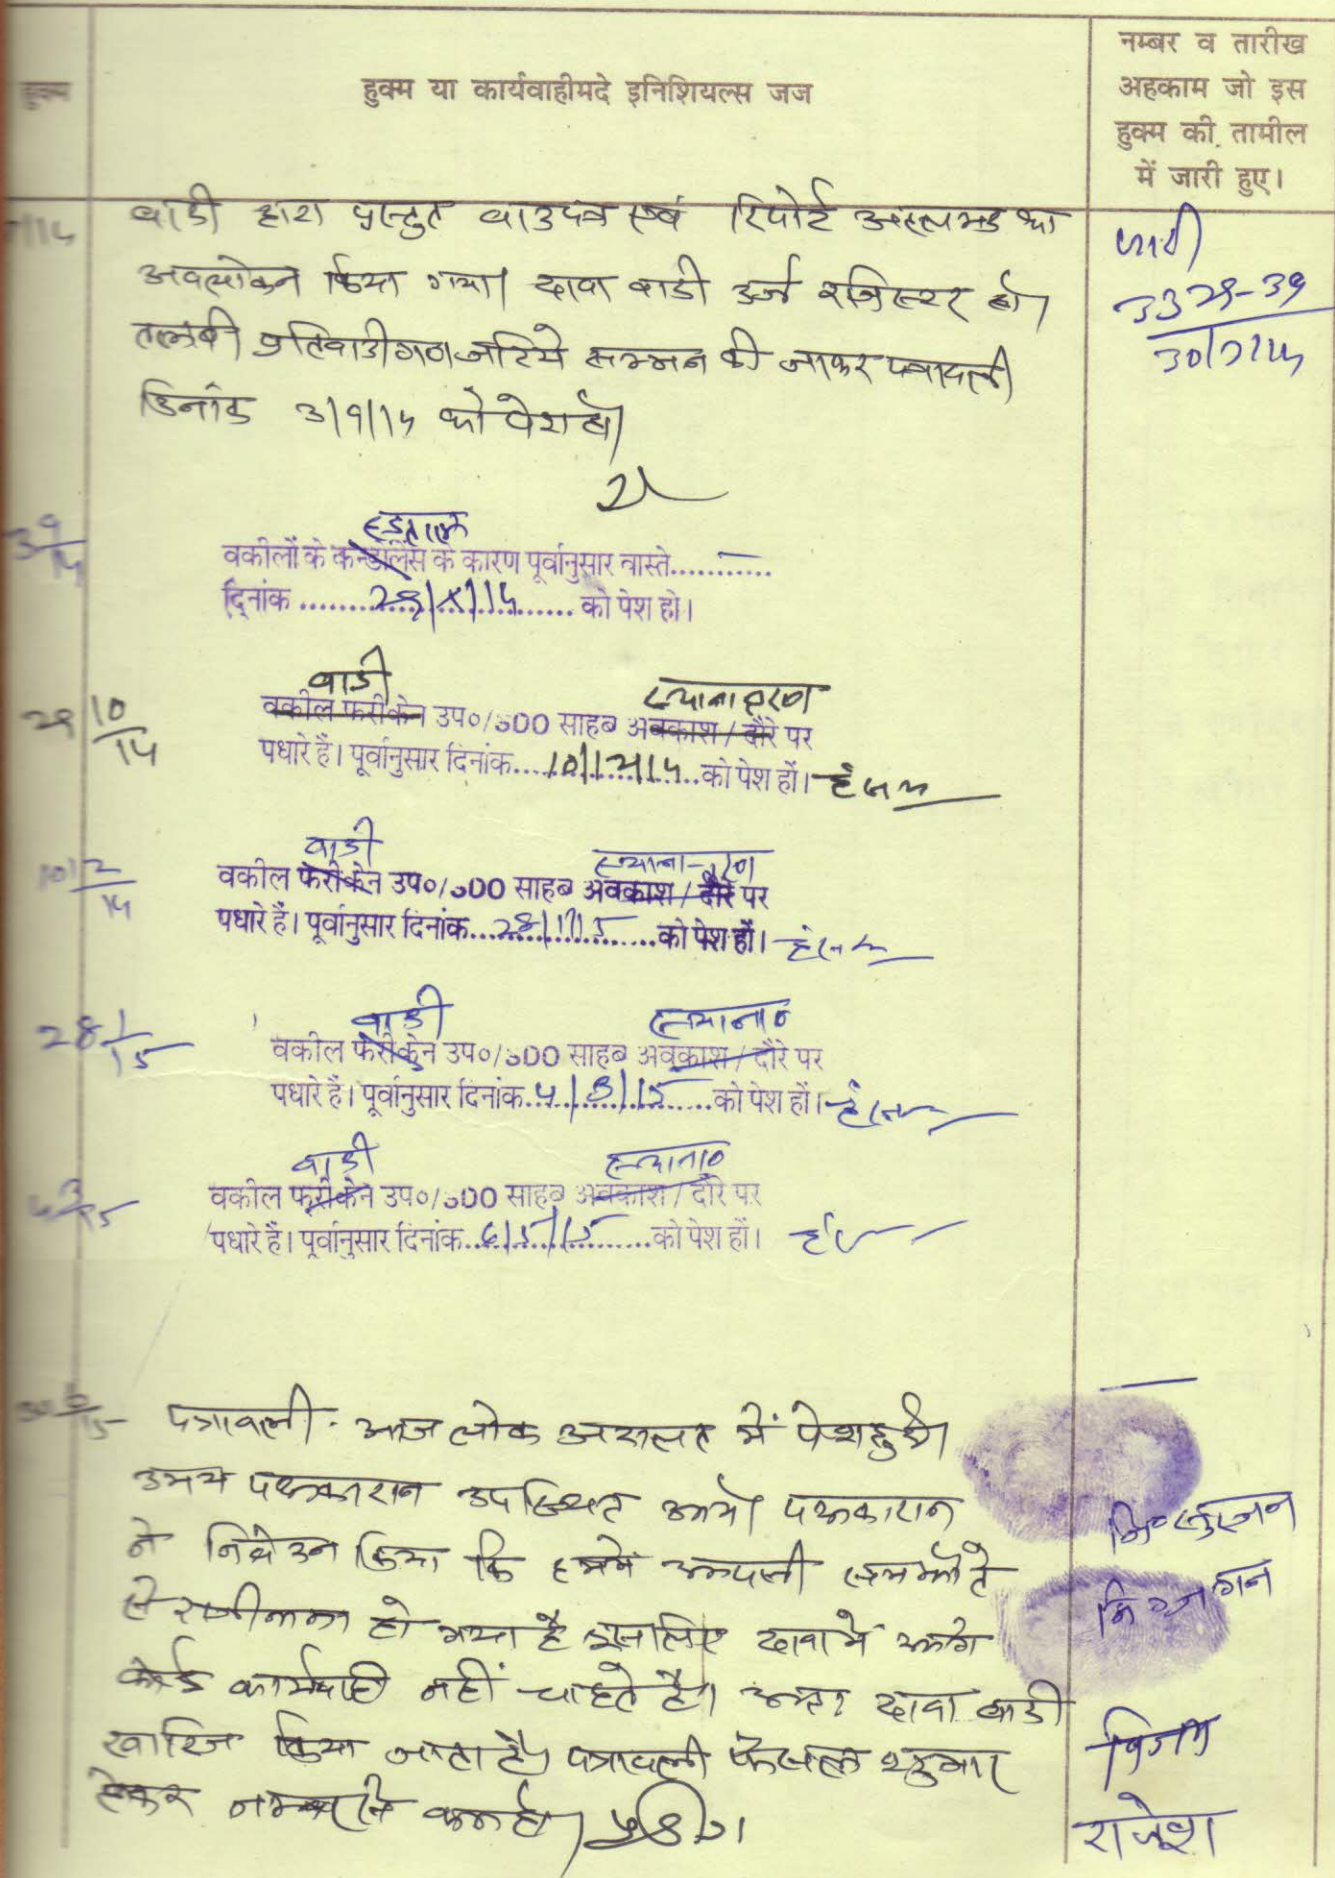 हुक्म
हुक्म या कार्यवाहीमदे इनिशियल्स जज
नम्बर व तारीख
अहकाम जो इस
हुक्म की तामील
में जारी हुए।
वादी द्वारा प्रस्तुत वादपत्र एवं रिपोर्ट का
अवलोकन किया गया। दावा वादी दर्ज रजिस्टर हो।
तलबी प्रतिवादीगण जरिये सम्मन की जाकर पत्रावली
दिनांक 3/9/14 को पेश हो।
जारी
3328-39
30/7/14
3 9/14
हड़ताल
वकीलों के कन्डोलेंस के कारण पूर्वानुसार वास्ते............
दिनांक ........28/X/14........ को पेश हो।
28 10/14
वादी स्थानान्तरण
वकील फरीकेन उप०/SDO साहब अवकाश / दौरे पर
पधारे हैं। पूर्वानुसार दिनांक....10/12/14....को पेश हों।
10 12/14
वादी स्थानान्तरण
वकील फरीकेन उप०/SDO साहब अवकाश / दौरे पर
पधारे हैं। पूर्वानुसार दिनांक....28/1/15....को पेश हों।
28 1/15
वादी स्थाना०
वकील फरीकेन उप०/SDO साहब अवकाश / दौरे पर
पधारे हैं। पूर्वानुसार दिनांक..4/3/15....को पेश हों।
4 3/15
वादी स्थाना०
वकील फरीकेन उप०/SDO साहब अवकाश / दौरे पर
पधारे हैं। पूर्वानुसार दिनांक..6/5/15....को पेश हों।
पत्रावली आज लोक अदालत में पेश हुई।
उभय पक्षकारान उपस्थित आये। पक्षकारान
ने निवेदन किया कि हमारे आपसी समझौते
से राजीनामा हो गया है इसलिए दावा में आगे
कोई कार्यवाही नहीं चाहते है। अतः दावा वादी
खारिज किया जाता है। पत्रावली फैसल शुमार
होकर नम्बर से कम हो।
विजय
राजेश